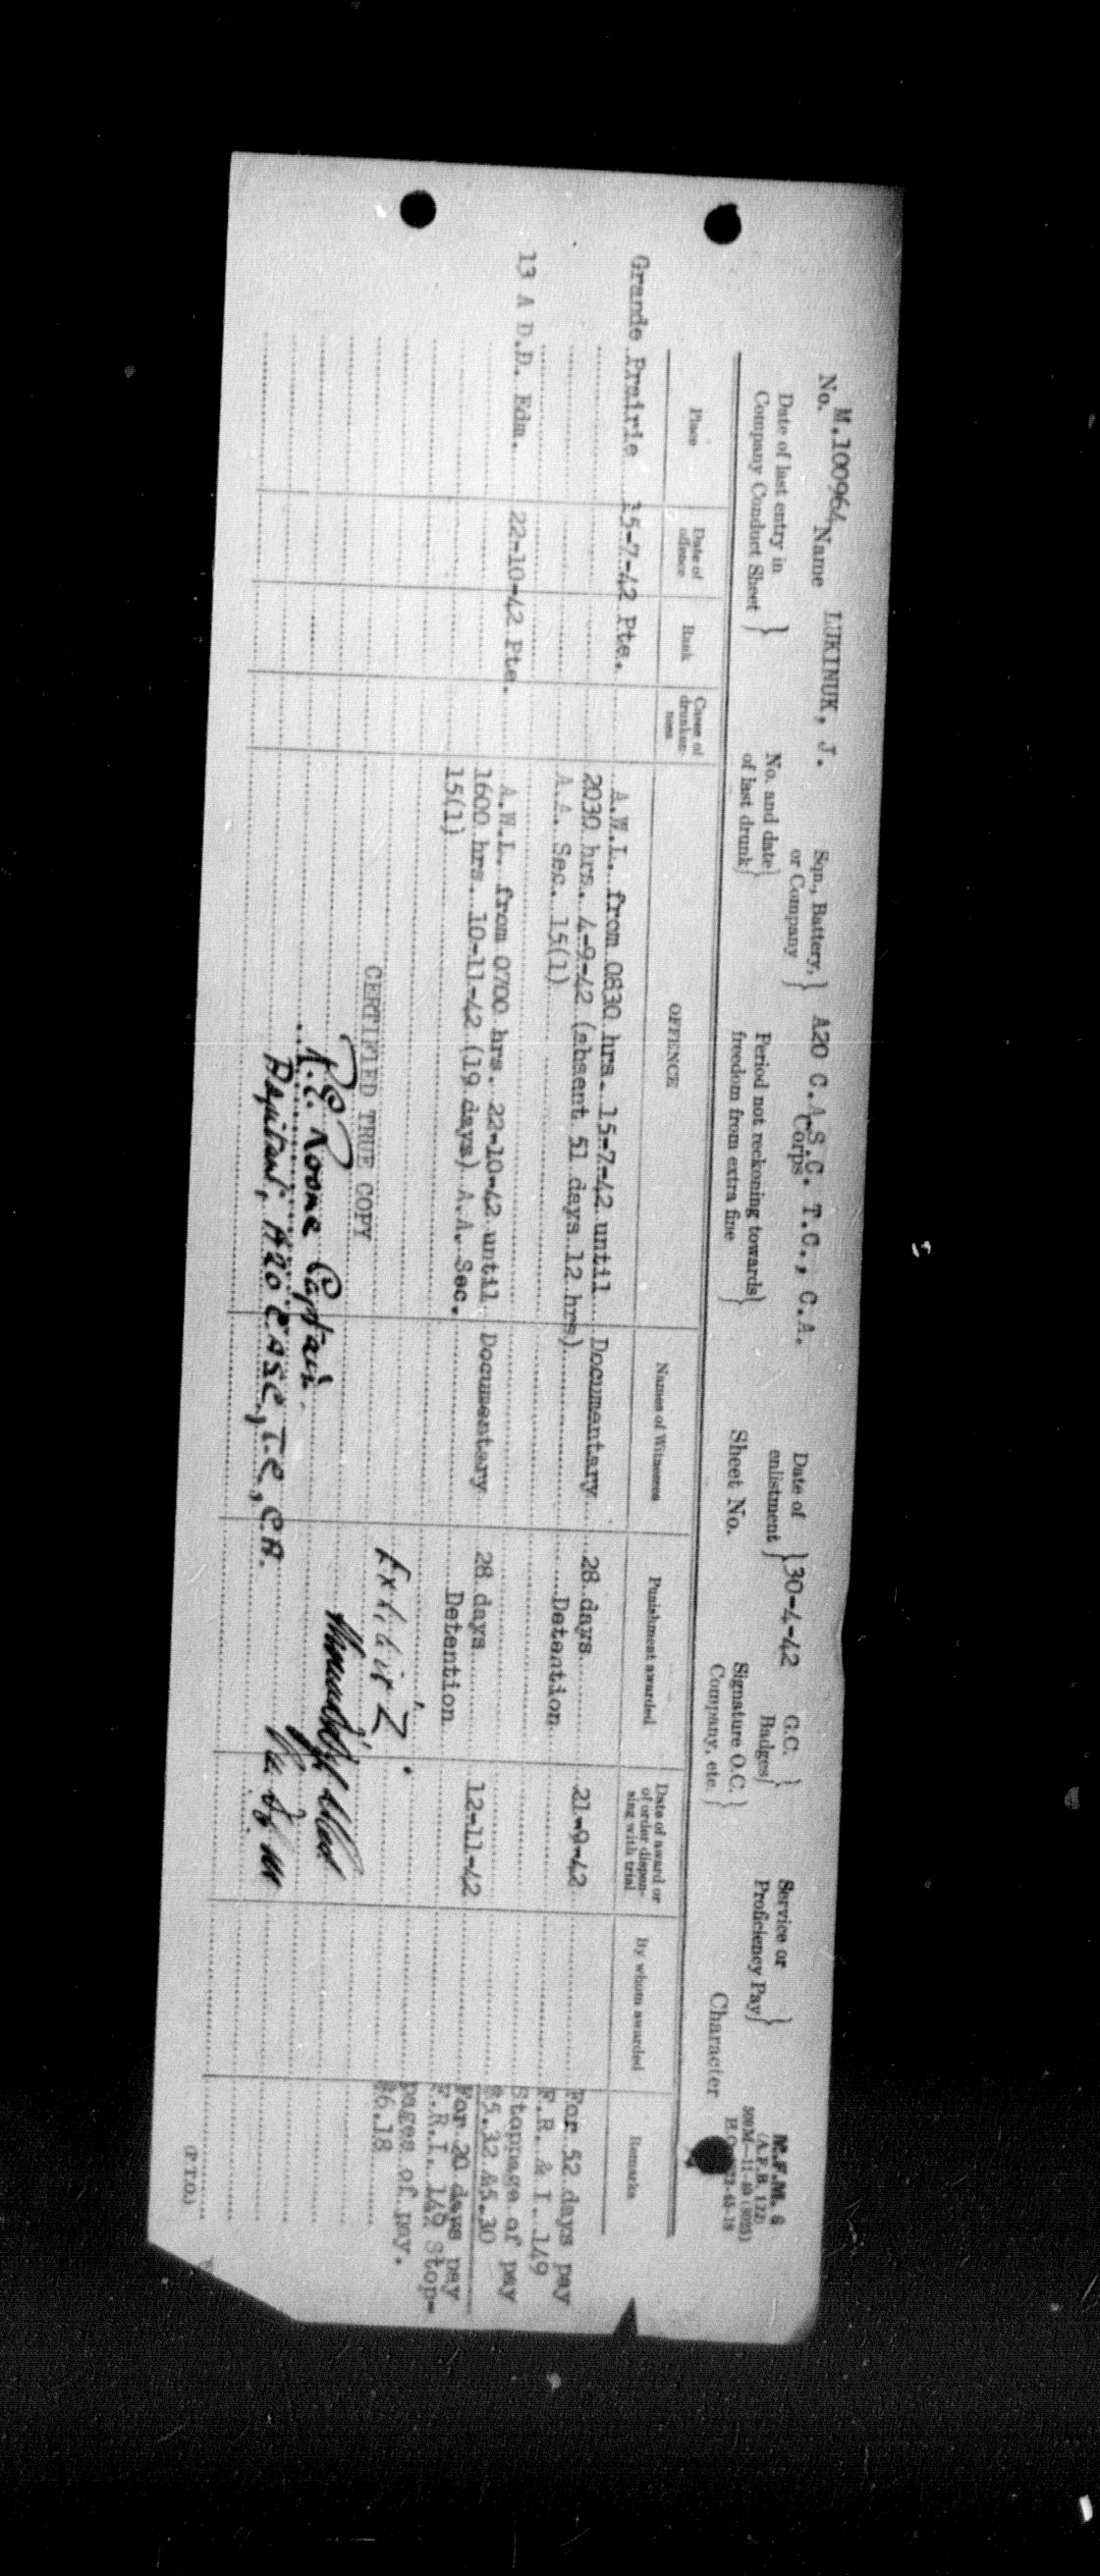 M.F.M. 6
(A.F.B. 122)
No. M.100964 Name LUKINUK, J. Sqn., Battery, or Company } A20 C.A.S.C. T.C., C.A. Corps Date of enlistment } 30-4-42 G.C. Badges } Service or Proficiency Pay }
Date of last entry in Company Conduct Sheet } No. and date of last drunk } Period not reckoning towards freedom from extra fine } Sheet No. Signature O.C. Company, etc. } Character
Place Date of offence Rank Cases of drunkenness OFFENCE Names of Witnesses Punishment awarded Date of award or of order dispensing with trial By whom awarded Remarks
Grande Prairie 15-7-42 Pte. A.W.L. from 0830 hrs. 15-7-42 until Documentary 28 days 21-9-42 For 52 days pay
2030 hrs. 4-9-42 (absent 51 days 12 hrs) Detention F.R. & I. 149
A.A. Sec. 15(1) Stoppage of pay
13 A D.D. Edm. 22-10-42 Pte. A.W.L. from 0700 hrs. 22-10-42 until Documentary 28 days 12-11-42 For 20 days pay
1600 hrs. 10-11-42 (19 days) A.A. Sec. Detention F.R.I. 149 Stop-
15(1) pages of pay.
$6.18
Exhibit Z.
CERTIFIED TRUE COPY
R.E. Roome Captain.
Adjutant, A20 CASC, T.C., C.A.
(P.T.O.)